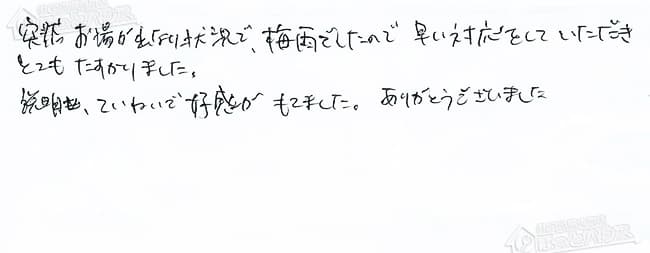 突然お湯が出ない状況で、梅雨でしたので早い対応をしていただき
とてもたすかりました。
説明も、ていねいで好感がもてました。ありがとうございました